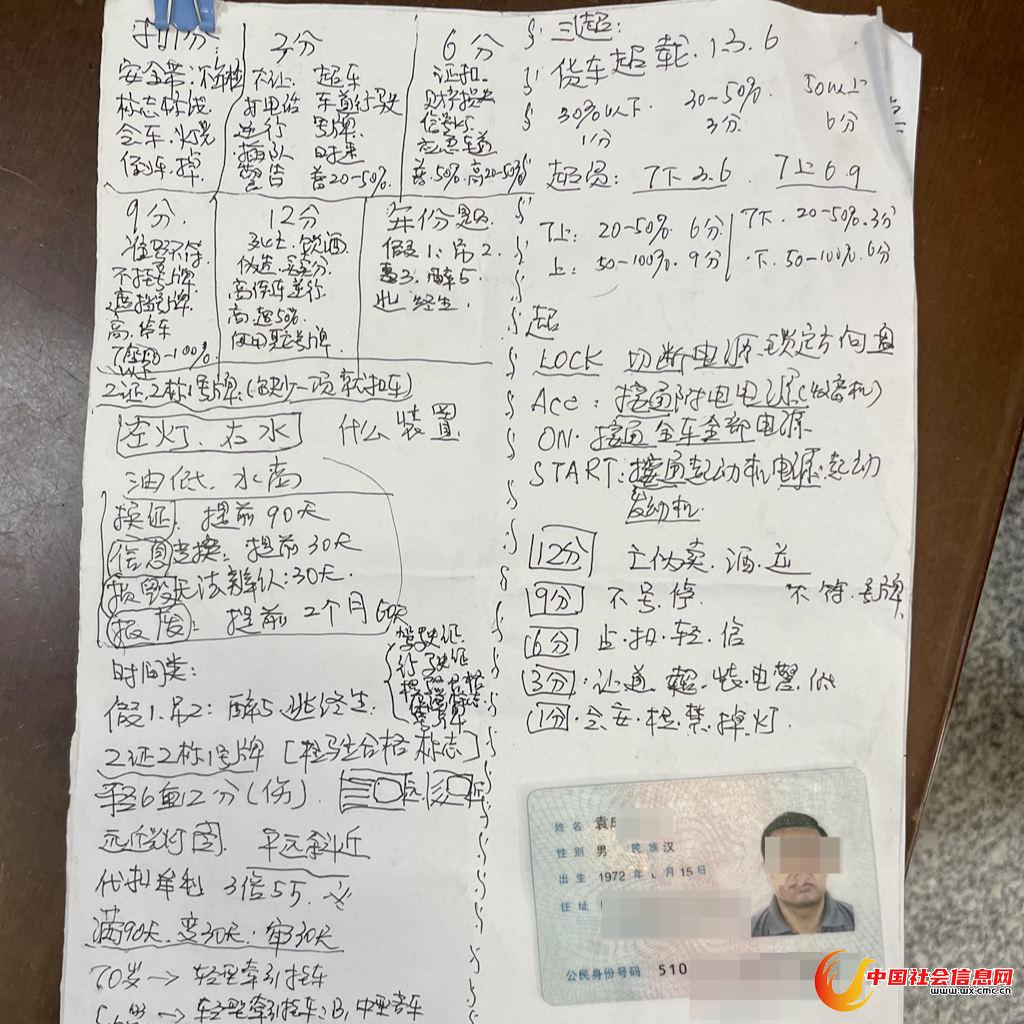 扣1分:
安全带:不年检
标志标线
会车.灯光
倒车.掉
3分
不让.
打电话
逆行
插队
警告
超车
车道行驶
号牌.
普20-50%.
6分
证扣.
财产损失
信号灯
应急车道
普.50%.高20-50%
9分.
准驾不符.
不挂号牌.
遮挡号牌.
高.停车
12分
伪造.买卖分.
高倒车逆行.
高.超50%.
使用 号牌.
年份题
假1.吊2.
毒3.醉5.
逃 终生.
2证,2标1号牌:(缺少一项就扣车)
左灯、右水 什么装置
油低、水高
换证、提前90天
信息变换:提前30天
损毁无法辨认:30天.
报废:提前2个月60天
驾驶证
行驶证
号牌
时间类:
假1.吊2:醉5.逃终生.
2证2标1号牌[检验合格标志]
轻6重12分(伤).
远近灯图、平远斜近
代扣牟利 3倍5万.
满90天.变30天:审30天
70岁→轻型牵引挂车
→轻型牵引挂车:B,中型客车
三超:
货车超载.1.3.6
30%以下
1分
30-50%
3分
50以上
6分
超员:7下3.6. 7上6.9
7上:20-50% 6分 7下.20-50%.3分
上:50-100%.9分 .下.50-100%.6分
超
LOCK 切断电源.锁定方向盘
Acc:接通附电电源(收音机)
ON.接通全车全部电源
START:接通起动机电源.起动
发动机.
12分 亡伪卖.酒.逆
9分 不.号.停. 不符.号牌.
6分 占.扣.轻.信
3分.让道.超.装.电警.低
1分.会安.检.禁.掉灯.
姓名 袁
性别 男 民族 汉
出生 1972年 月15日
住址
公民身份号码 510
中国社会信息网
www.wx-cmc.cn